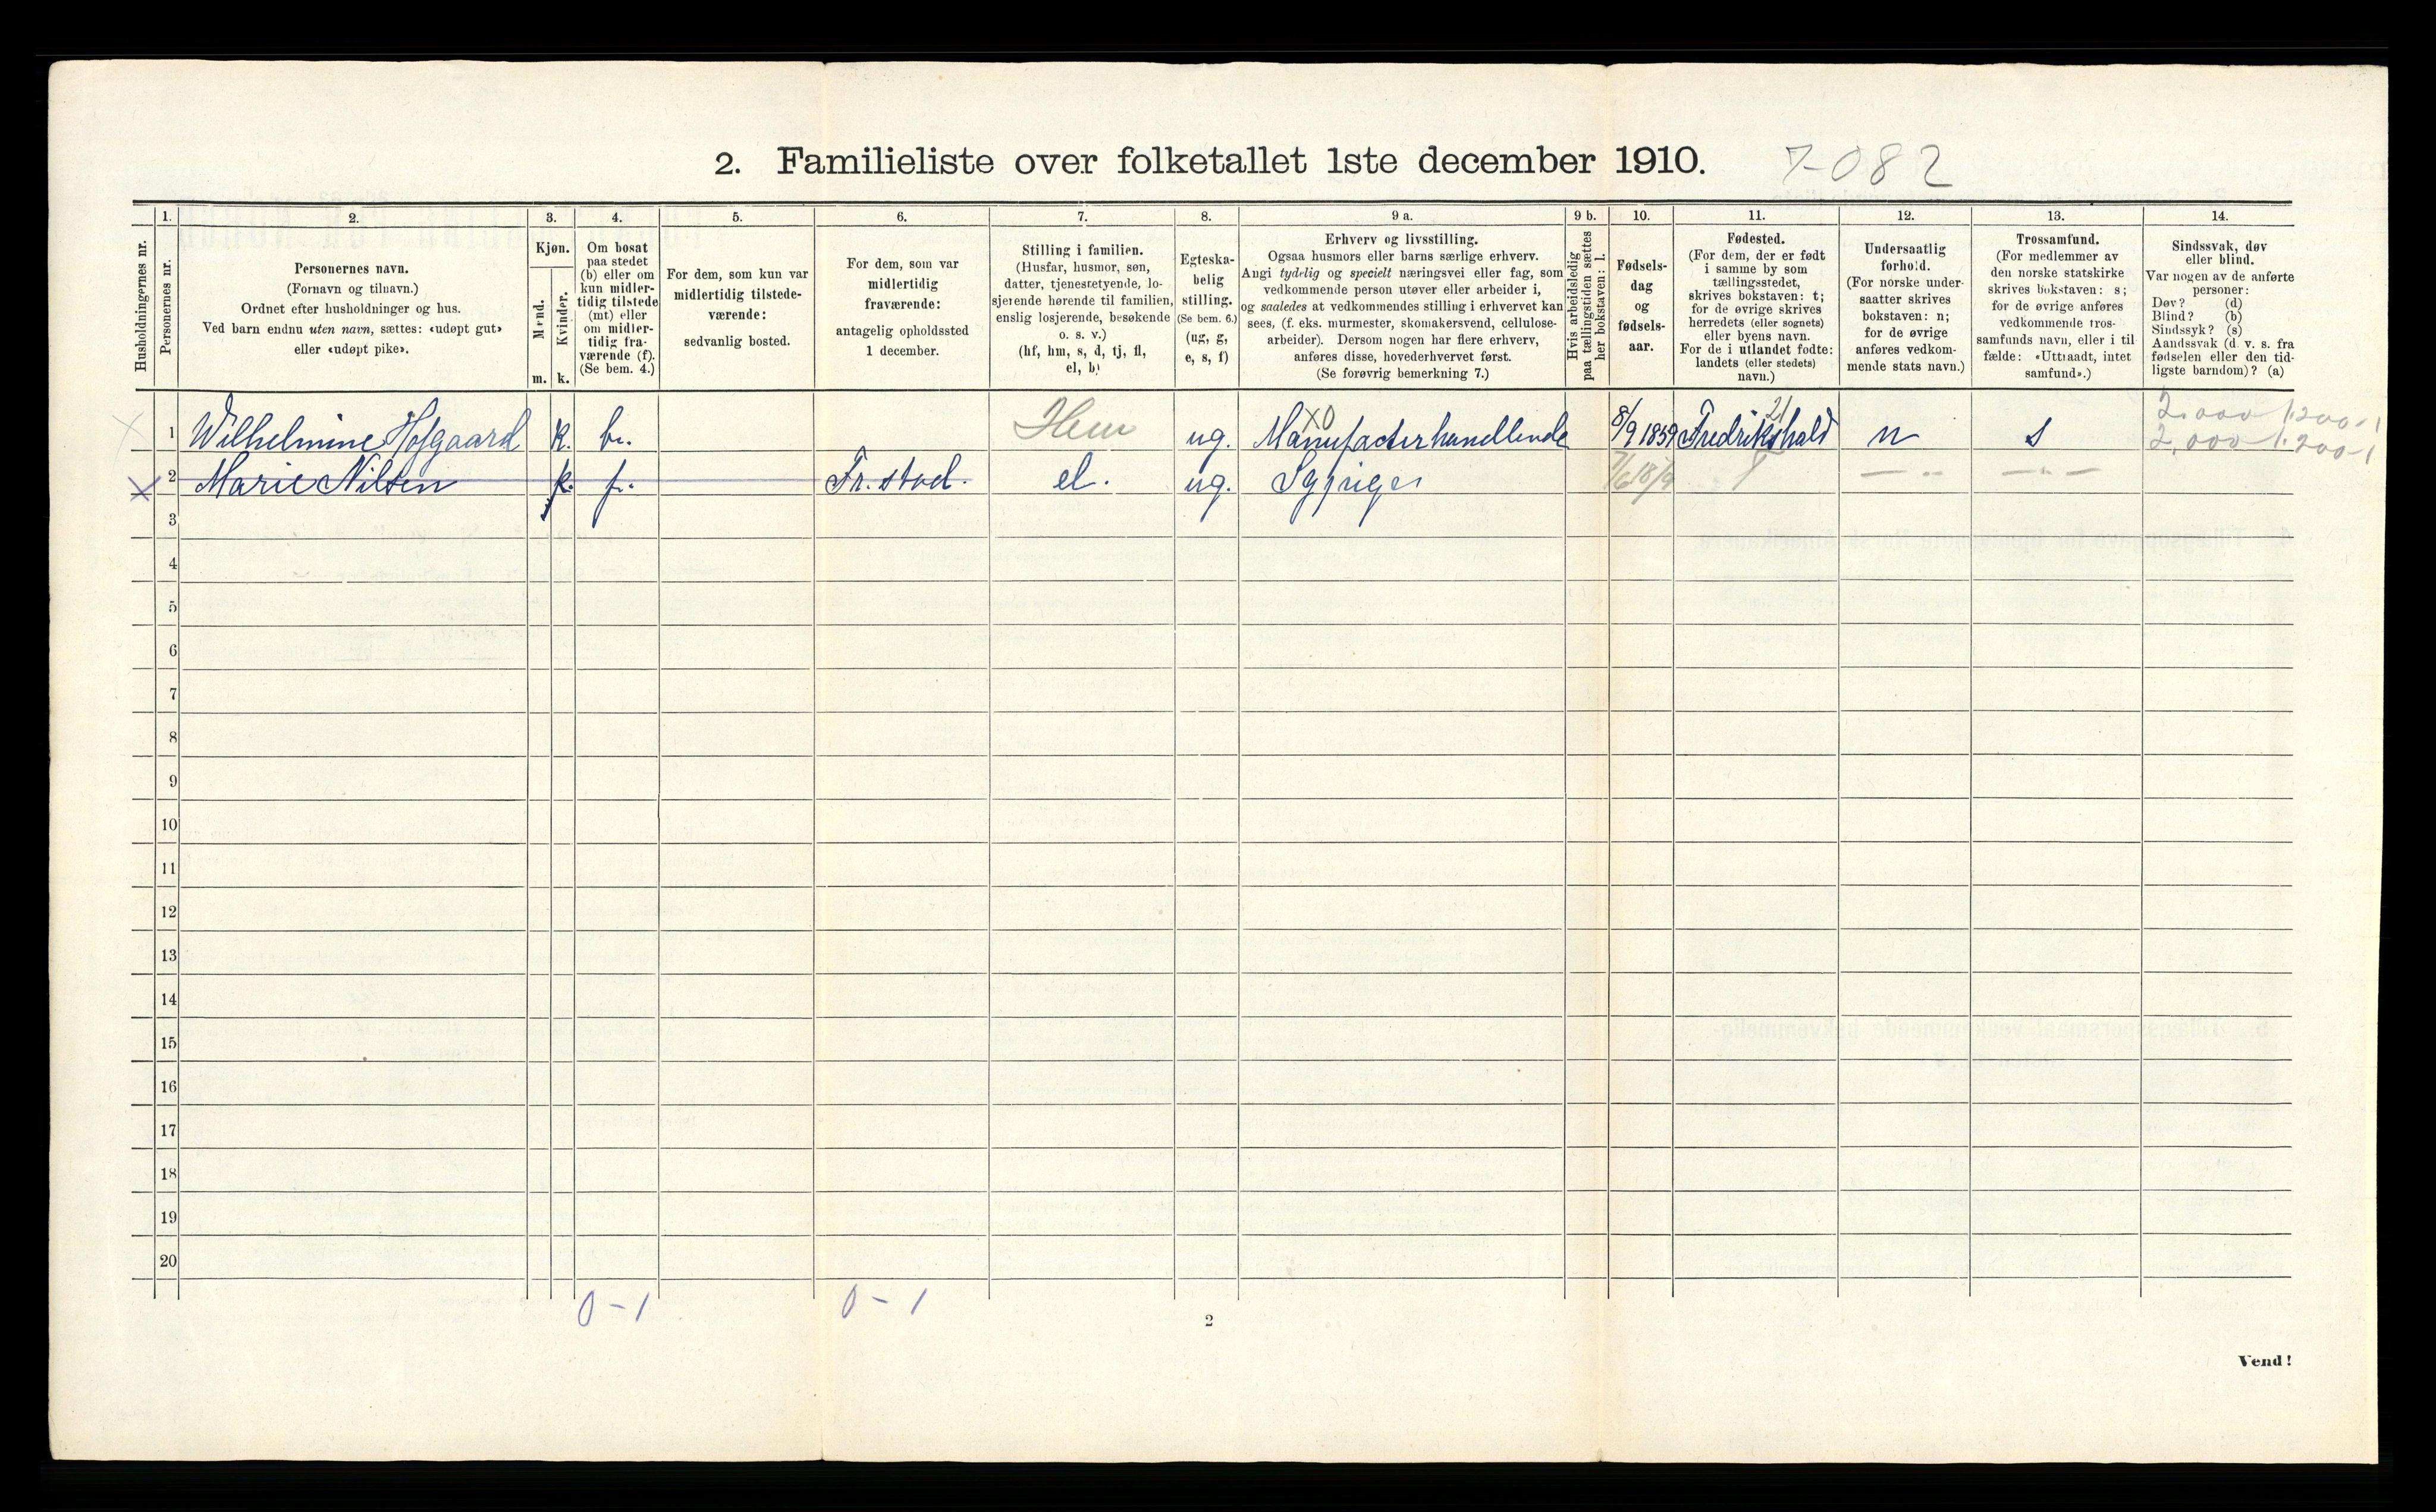 2. Familieliste over folketallet 1ste december 1910. 7-082
Husholdningernes nr.
1.
Personernes nr.
2.
Personernes navn.
(Fornavn og tilnavn.)
Ordnet efter husholdninger og hus.
Ved barn endnu uten navn, sættes: «udøpt gut»
eller «udøpt pike».
3.
Kjøn.
Mænd.
m.
Kvinder.
k.
4.
Om bosat
paa stedet
(b) eller om
kun midler-
tidig tilstede
(mt) eller
om midler-
tidig fra-
værende (f).
(Se bem. 4.)
5.
For dem, som kun var
midlertidig tilstede-
værende:
sedvanlig bosted.
6.
For dem, som var
midlertidig
fraværende:
antagelig opholdssted
1 december.
7.
Stilling i familien.
(Husfar, husmor, søn,
datter, tjenestetyende, lo-
sjerende hørende til familien,
enslig losjerende, besøkende
o. s. v.)
(hf, hm, s, d, tj, fl,
el, b)
8.
Egteska-
belig
stilling.
(Se bem. 6.)
(ug, g,
e, s, f)
9 a.
Erhverv og livsstilling.
Ogsaa husmors eller barns særlige erhverv.
Angi tydelig og specielt næringsvei eller fag, som
vedkommende person utøver eller arbeider i,
og saaledes at vedkommendes stilling i erhvervet kan
sees, (f. eks. murmester, skomakersvend, cellulose-
arbeider). Dersom nogen har flere erhverv,
anføres disse, hovederhvervet først.
(Se forøvrig bemerkning 7.)
9 b.
Hvis arbeidsledig
paa tællingstiden sættes
her bokstaven: l.
10.
Fødsels-
dag
og
fødsels-
aar.
11.
Fødested.
(For dem, der er født
i samme by som
tællingsstedet,
skrives bokstaven: t;
for de øvrige skrives
herredets (eller sognets)
eller byens navn.
For de i utlandet fødte:
landets (eller stedets)
navn.)
12.
Undersaatlig
forhold.
(For norske under-
saatter skrives
bokstaven: n;
for de øvrige
anføres vedkom-
mende stats navn.)
13.
Trossamfund.
(For medlemmer av
den norske statskirke
skrives bokstaven: s;
for de øvrige anføres
vedkommende tros-
samfunds navn, eller i til-
fælde: «Uttraadt, intet
samfund».)
14.
Sindssvak, døv
eller blind.
Var nogen av de anførte
personer:
Døv? (d)
Blind? (b)
Sindssyk? (s)
Aandssvak (d. v. s. fra
fødselen eller den tid-
ligste barndom)? (a)
XO 21 2.000 1.200-1
1 Wilhelmine Hofgaard k. b. ug. Manufacturhandlende 8/9 1859 Fredrikshald n s 2.000 1.200-1
X 2 Marie Nilsen k. f. Fr.stad. el. ug. Sypige — " — — " —
3
4
5
6
7
8
9
10
11
12
13
14
15
16
17
18
19
20
0-1 0-1
2
Vend!